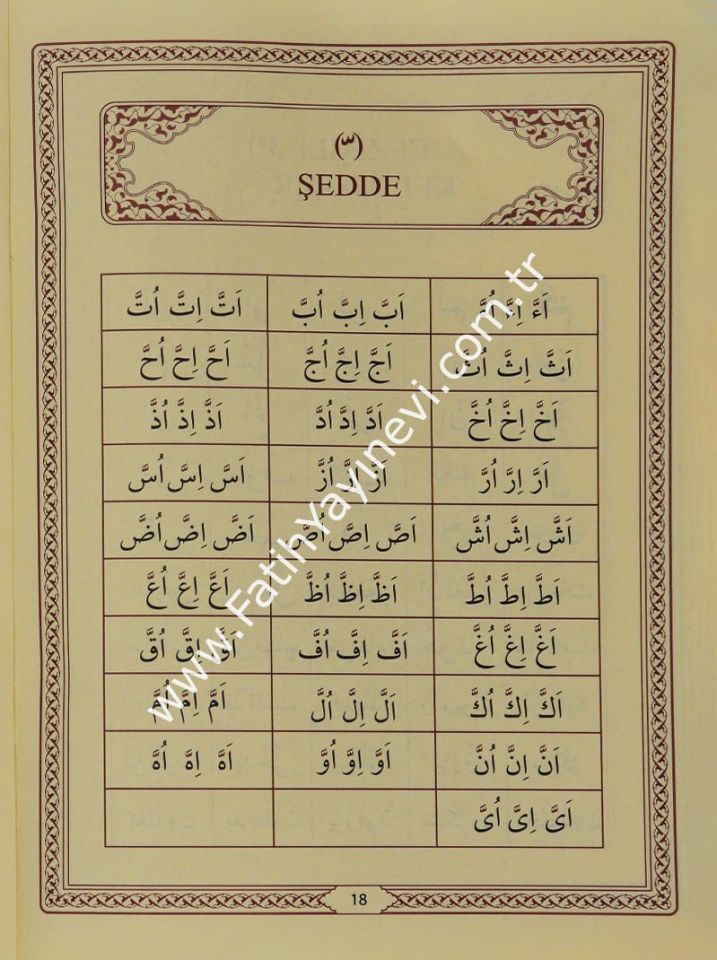 (ّ)
ŞEDDE
اَءَّ اِءَّ اُءَّ اَبَّ اِبَّ اُبَّ اَتَّ اِتَّ اُتَّ
اَثَّ اِثَّ اُثَّ اَجَّ اِجَّ اُجَّ اَحَّ اِحَّ اُحَّ
اَخَّ اِخَّ اُخَّ اَدَّ اِدَّ اُدَّ اَذَّ اِذَّ اُذَّ
اَرَّ اِرَّ اُرَّ اَزَّ اِزَّ اُزَّ اَسَّ اِسَّ اُسَّ
اَشَّ اِشَّ اُشَّ اَصَّ اِصَّ اُصَّ اَضَّ اِضَّ اُضَّ
اَطَّ اِطَّ اُطَّ اَظَّ اِظَّ اُظَّ اَعَّ اِعَّ اُعَّ
اَغَّ اِغَّ اُغَّ اَفَّ اِفَّ اُفَّ اَقَّ اِقَّ اُقَّ
اَكَّ اِكَّ اُكَّ اَلَّ اِلَّ اُلَّ اَمَّ اِمَّ اُمَّ
اَنَّ اِنَّ اُنَّ اَوَّ اِوَّ اُوَّ اَهَّ اِهَّ اُهَّ
اَىَّ اِىَّ اُىَّ
18
www.FatihYayinevi.com.tr